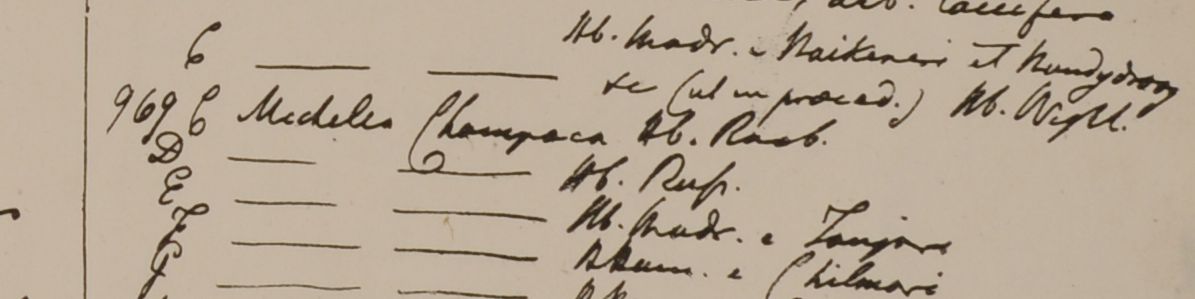 arb. laccifera
6 — — Hb. Madr. e Naikeneri et Nundydroog
&c (ut in præced.) Hb. Wight.
969 C Michelia Champaca Hb. Roxb.
D — — Hb. Russ.
E — — Hb. Madr. e Tanjore
F — — HHam. e Chilmari
G — —